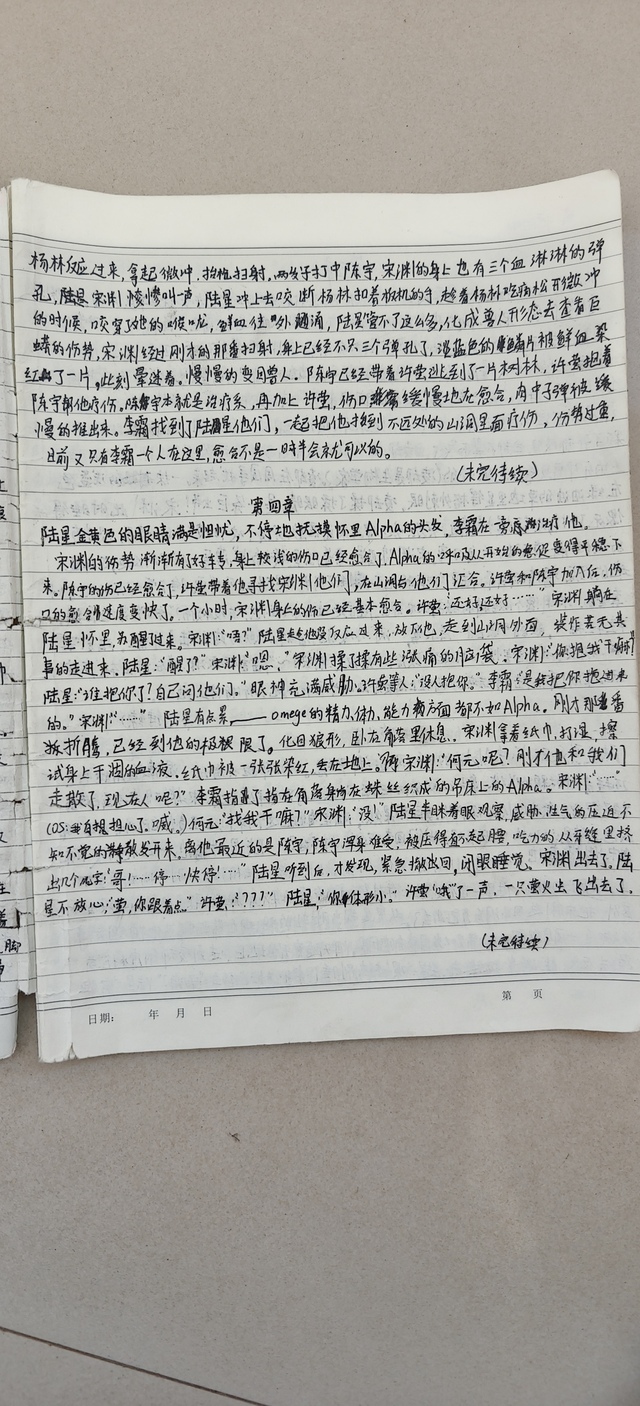 杨林反应过来，拿起微冲，抬枪扫射，两发子打中陈宇，宋渊的身上也有三个血淋淋的弹
孔，宋渊惨叫一声，陆星冲上去咬断杨林扣着扳机的手，趁着杨林吃痛松开微冲
的时候，咬穿了她的喉咙，鲜血往外翻涌，陆星管不了这么多，化成兽人形态去查看巨
蟒的伤势，宋渊经过刚才的那番扫射，身上已经不只三个弹孔了，淡蓝色的鳞片被鲜血染
红了一片。此刻晕迷着。慢慢的变回兽人。陈宇已经带着许萤逃到了一片树林，许萤抱着
陈宇帮他疗伤。陈宇本就是治疗系，再加上许萤，伤口缓慢地在愈合，肉中子弹被缓
慢的推出来。李霜找到了陆星他们，一起把他抬到不远处的山洞里面疗伤，伤势过重，
目前又只有李霜一个人在这里，愈合不是一时半会就可以的。
（未完待续）
第四章
陆星金黄色的眼睛满是担忧，不停地抚摸怀里Alpha的头发，李霜在一旁治疗他。
宋渊的伤势渐渐有了好转，身上较浅的伤口已经愈合了，Alpha的呼吸从开始的急促变得平稳下
来。陈宇的伤已经愈合了，许萤带着他寻找宋渊他们，在山洞与他们汇合。许萤和陈宇加入后，伤
口的愈合速度变快了。一个小时，宋渊身上的伤已经基本愈合。许萤：“还好还好……”宋渊躺在
陆星怀里，苏醒过来。宋渊：“唔？”陆星趁他没反应过来，放下他，走到山洞外面，装作若无其
事的走进来，陆星：“醒了？”宋渊：“嗯。”宋渊揉了揉有些涨痛的脑袋。宋渊：“你抱我干嘛？”
陆星：“谁把你了？自己问他们。”眼神充满威胁。许萤等人：“没人抱你。”李霜：“是我把你拖进来
的。”宋渊：“……”陆星有点累，——omege的精力，体力，能力方面都不如Alpha。刚才那番
折腾，已经到他的极限了。化回狼形，卧在角落里休息，宋渊拿着纸巾，打湿，擦
试身上干涸的血液。纸巾被一张张染红，丢在地上。宋渊：“何元呢？刚才他和我们
走散了，现在人呢？”李霜指了指在角落躺在蛛丝织成的吊床上的Alpha。宋渊：“……”
（OS：我白担心了。嘁。）何元：“找我干嘛？”宋渊：“没！”陆星半眯着眼观察，威胁性气的压迫不
知不觉的散发开来，离他最近的是陈宇，陈宇浑身难受，被压得直不起腰，吃力的从牙缝里挤
出几个字：“哥！……停…快停！……”陆星听到后，才发现，紧急撤出回，闭眼睡觉。宋渊出去了，陆
星不放心：“萤，你跟着点。”许萤：“？？？？”陆星：“你体形小。”许萤“哦”了一声，一只萤火虫飞出去了。
（未完待续）
日期： 年 月 日
第 页